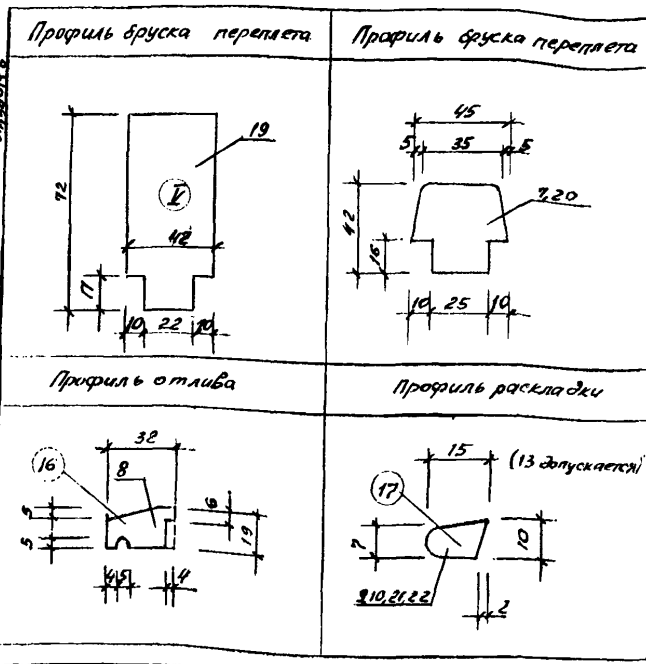 Профиль бруска переплета
19
72
V
42
17
10 22 10
Профиль бруска переплета
45
5 35 5
7,20
42
16
10 25 10
Профиль отлива
32
16
8
5
5
6
19
4 5 4
Профиль раскладки
15
(13 допускается)
17
7
10
9,10,21,22
2